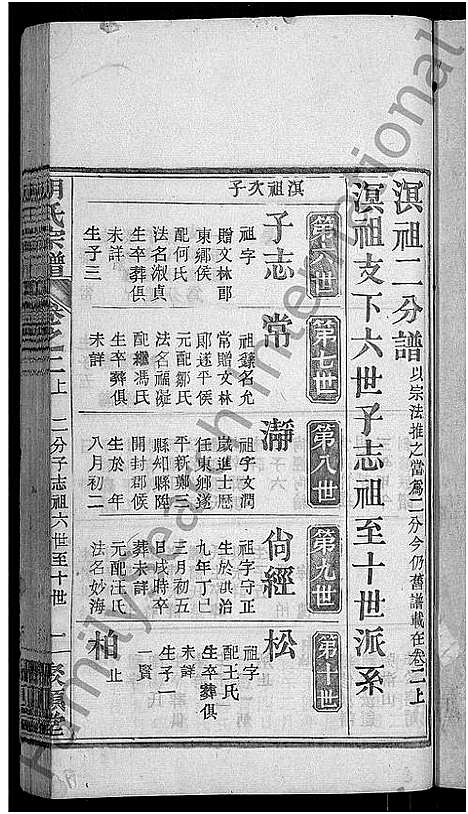 溟祖二分譜 以宗法推之當為二分今仍舊譜載在卷二上
溟祖支下六世子志祖至十世派系
溟祖次子
第六世
子志
祖字
贈文林郎
東鄉侯
配何氏
法名淑貞
生卒葬俱
未詳
生子三
第七世
常
祖諱名允
常贈文林
郎遂平侯
元配鄒氏
法名福凝
配繼馮氏
生卒葬俱
未詳
第八世
瀞
祖字文潤
歲進士歷
任東鄉遂
平新鄭三
縣知縣陞
開封郡侯
生於 年
八月初二
第九世
尚經
祖字守正
生於洪治
九年丁巳
三月初五
日戌時卒
葬未詳
元配汪氏
法名妙海
第十世
松
祖字
配王氏
生卒葬俱
未詳
生子一
一賢
止
柏
胡氏宗譜 卷之二上 二分子志祖六世至十世 一
Family Search International